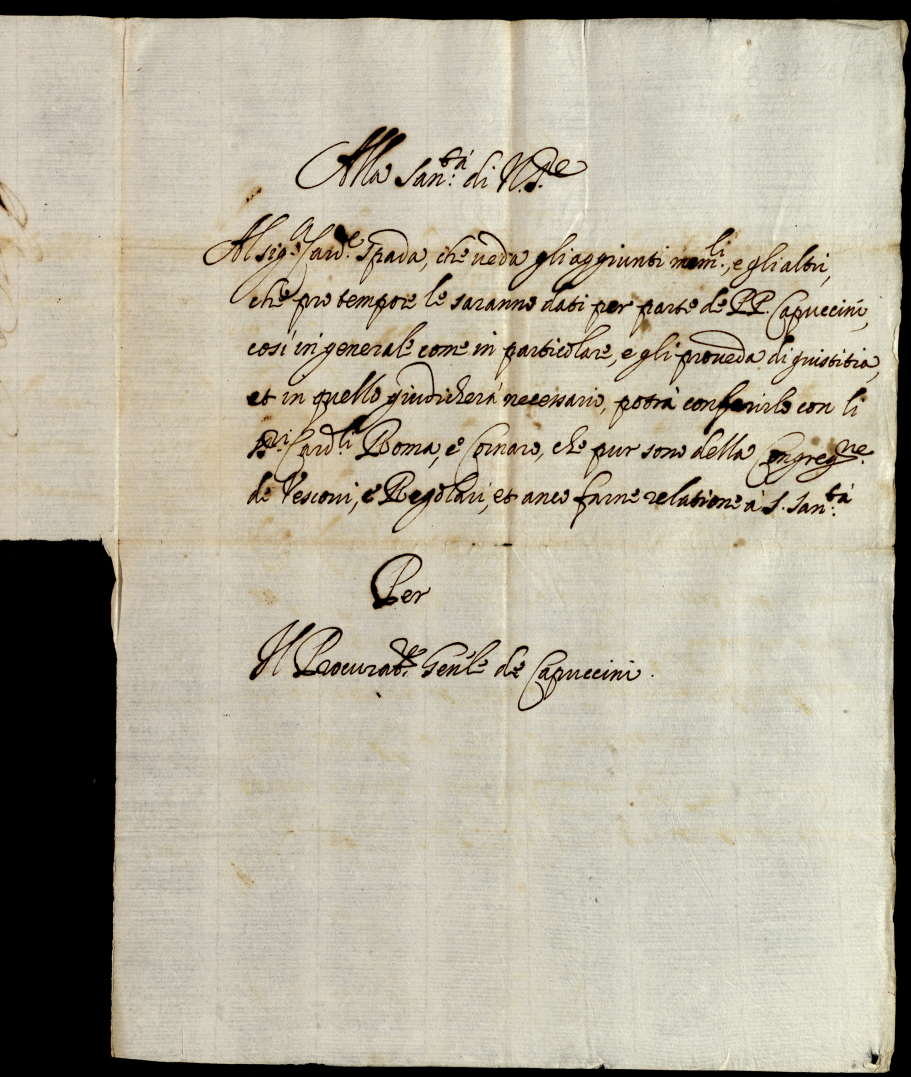 Alla San.tà di N. S.re
Al sig.r Card.le Spada, che veda gli aggiunti mem.li, e gli altri,
che pro tempore le saranno dati per parte de PP. Capuccini,
così in generale come in particolare, e gli proveda di giustitia,
et in quello giudicherà necessario, potrà conferirlo con li
SS.ri Card.li Roma, e Cornaro, che pur sono della Congreg.ne
de Vescovi, e Regolari, et anco farne relatione à S. San.tà
Per
Il Procurat.re Gen'le de Capuccini.